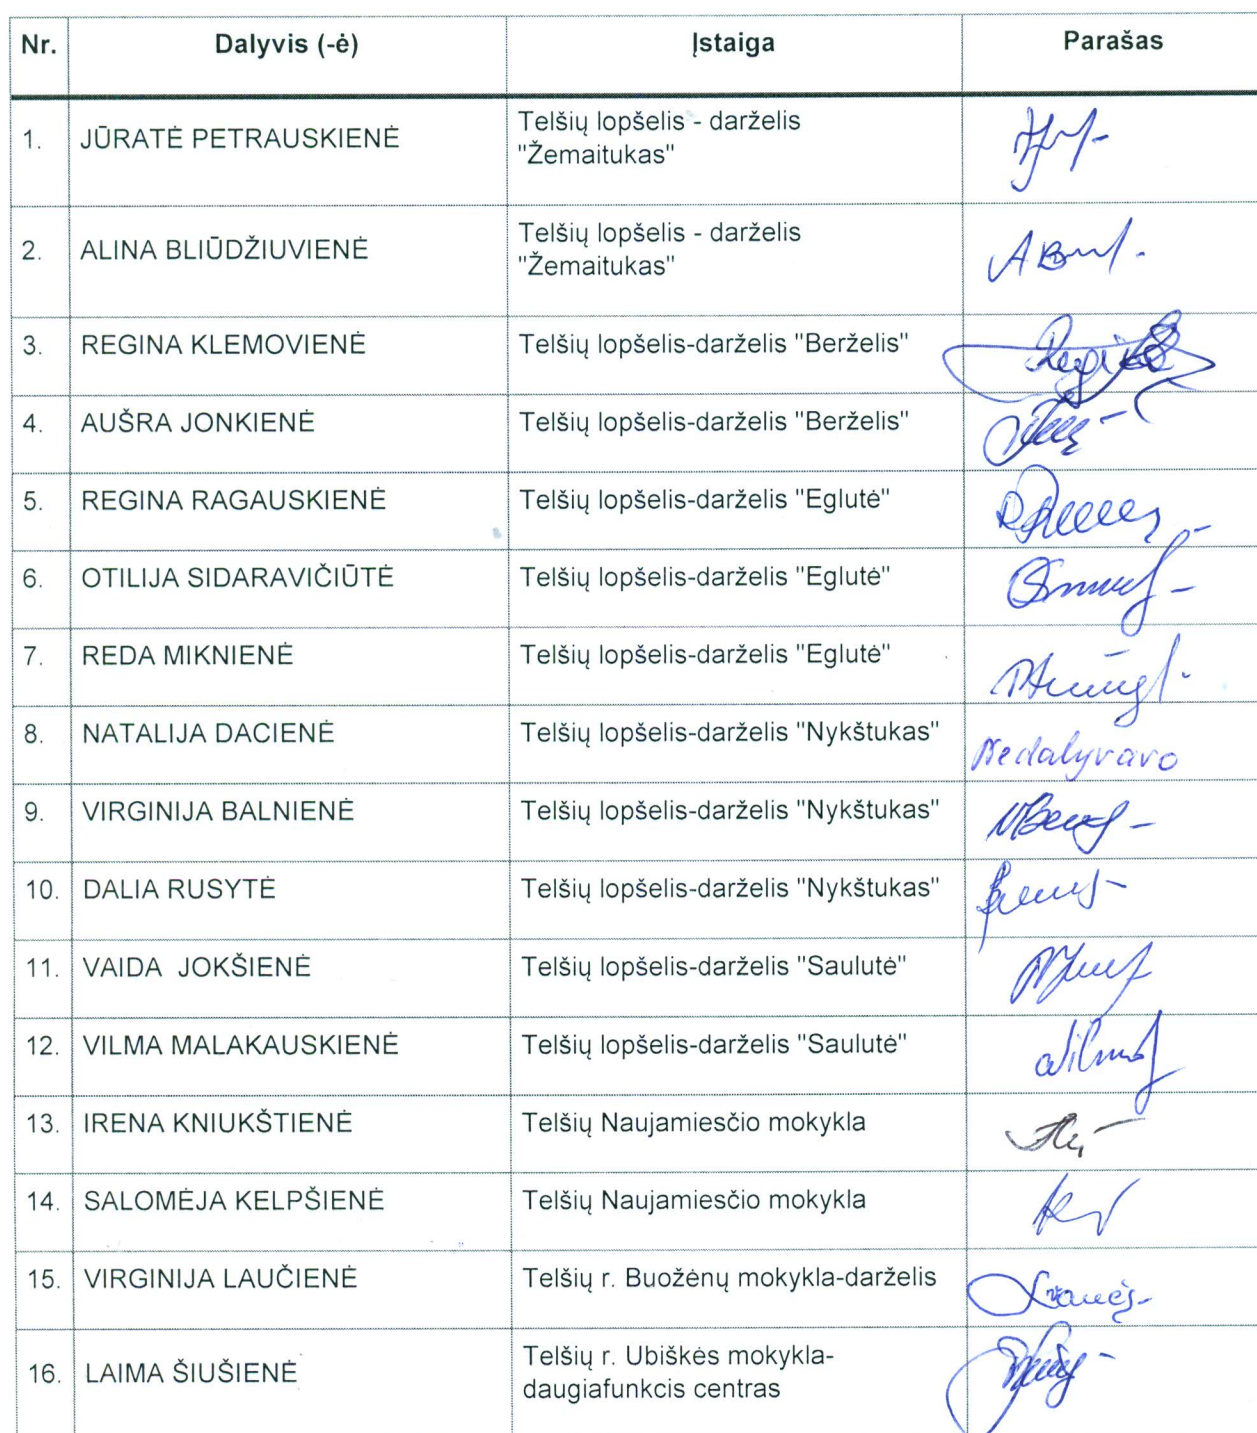 Nr. Dalyvis (-ė) Įstaiga Parašas
1. JŪRATĖ PETRAUSKIENĖ Telšių lopšelis - darželis
"Žemaitukas"
2. ALINA BLIŪDŽIUVIENĖ Telšių lopšelis - darželis
"Žemaitukas"
3. REGINA KLEMOVIENĖ Telšių lopšelis-darželis "Berželis"
4. AUŠRA JONKIENĖ Telšių lopšelis-darželis "Berželis"
5. REGINA RAGAUSKIENĖ Telšių lopšelis-darželis "Eglutė"
6. OTILIJA SIDARAVIČIŪTĖ Telšių lopšelis-darželis "Eglutė"
7. REDA MIKNIENĖ Telšių lopšelis-darželis "Eglutė"
8. NATALIJA DACIENĖ Telšių lopšelis-darželis "Nykštukas" Nedalyvavo
9. VIRGINIJA BALNIENĖ Telšių lopšelis-darželis "Nykštukas"
10. DALIA RUSYTĖ Telšių lopšelis-darželis "Nykštukas"
11. VAIDA JOKŠIENĖ Telšių lopšelis-darželis "Saulutė"
12. VILMA MALAKAUSKIENĖ Telšių lopšelis-darželis "Saulutė"
13. IRENA KNIUKŠTIENĖ Telšių Naujamiesčio mokykla
14. SALOMĖJA KELPŠIENĖ Telšių Naujamiesčio mokykla
15. VIRGINIJA LAUČIENĖ Telšių r. Buožėnų mokykla-darželis
16. LAIMA ŠIUŠIENĖ Telšių r. Ubiškės mokykla-
daugiafunkcis centras